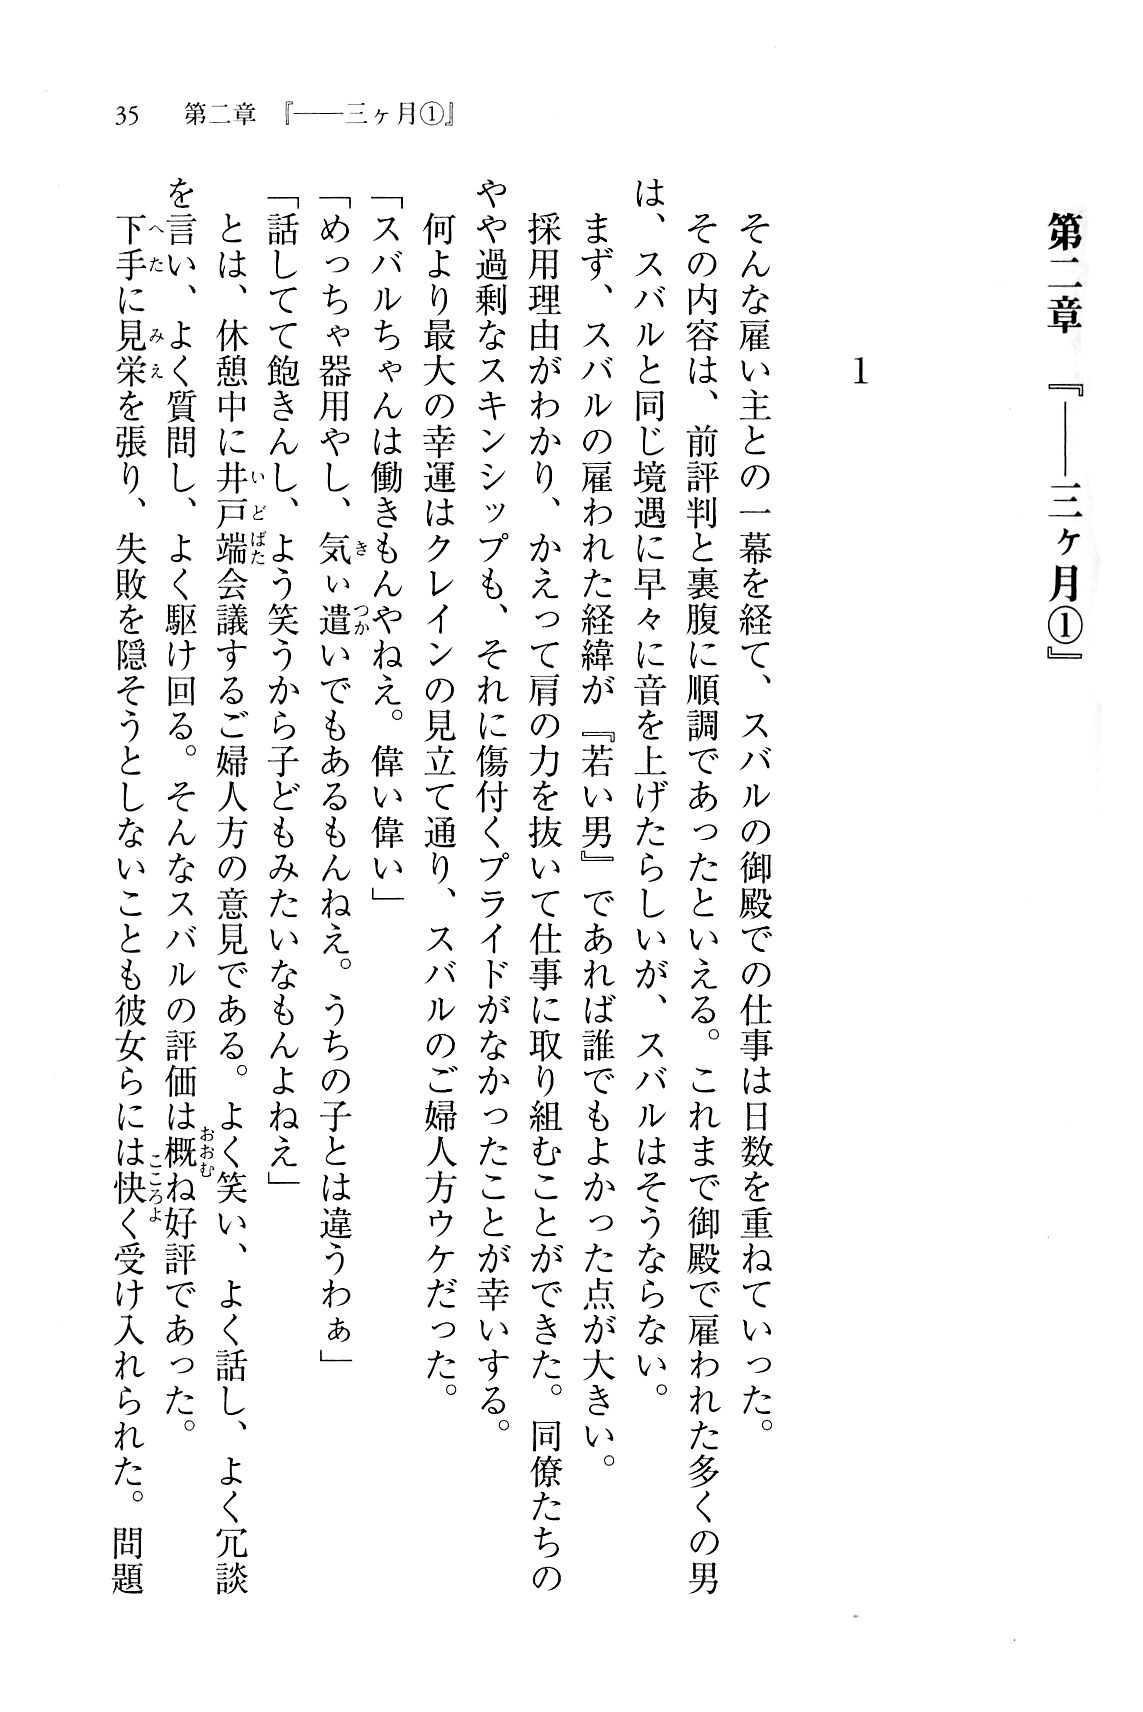 35　第二章　『――三ヶ月①』
第二章　『――三ヶ月①』
1
そんな雇い主との一幕を経て、スバルの御殿での仕事は日数を重ねていった。
その内容は、前評判と裏腹に順調であったといえる。これまで御殿で雇われた多くの男
は、スバルと同じ境遇に早々に音を上げたらしいが、スバルはそうならない。
まず、スバルの雇われた経緯が『若い男』であれば誰でもよかった点が大きい。
採用理由がわかり、かえって肩の力を抜いて仕事に取り組むことができた。同僚たちの
やや過剰なスキンシップも、それに傷付くプライドがなかったことが幸いする。
何より最大の幸運はクレインの見立て通り、スバルのご婦人方ウケだった。
「スバルちゃんは働きもんやねえ。偉い偉い」
「めっちゃ器用やし、気ぃ遣いでもあるもんねえ。うちの子とは違うわぁ」
「話してて飽きんし、よう笑うから子どもみたいなもんよねえ」
とは、休憩中に井戸端会議するご婦人方の意見である。よく笑い、よく話し、よく冗談
を言い、よく質問し、よく駆け回る。そんなスバルの評価は概ね好評であった。
下手に見栄を張り、失敗を隠そうとしないことも彼女らには快く受け入れられた。問題